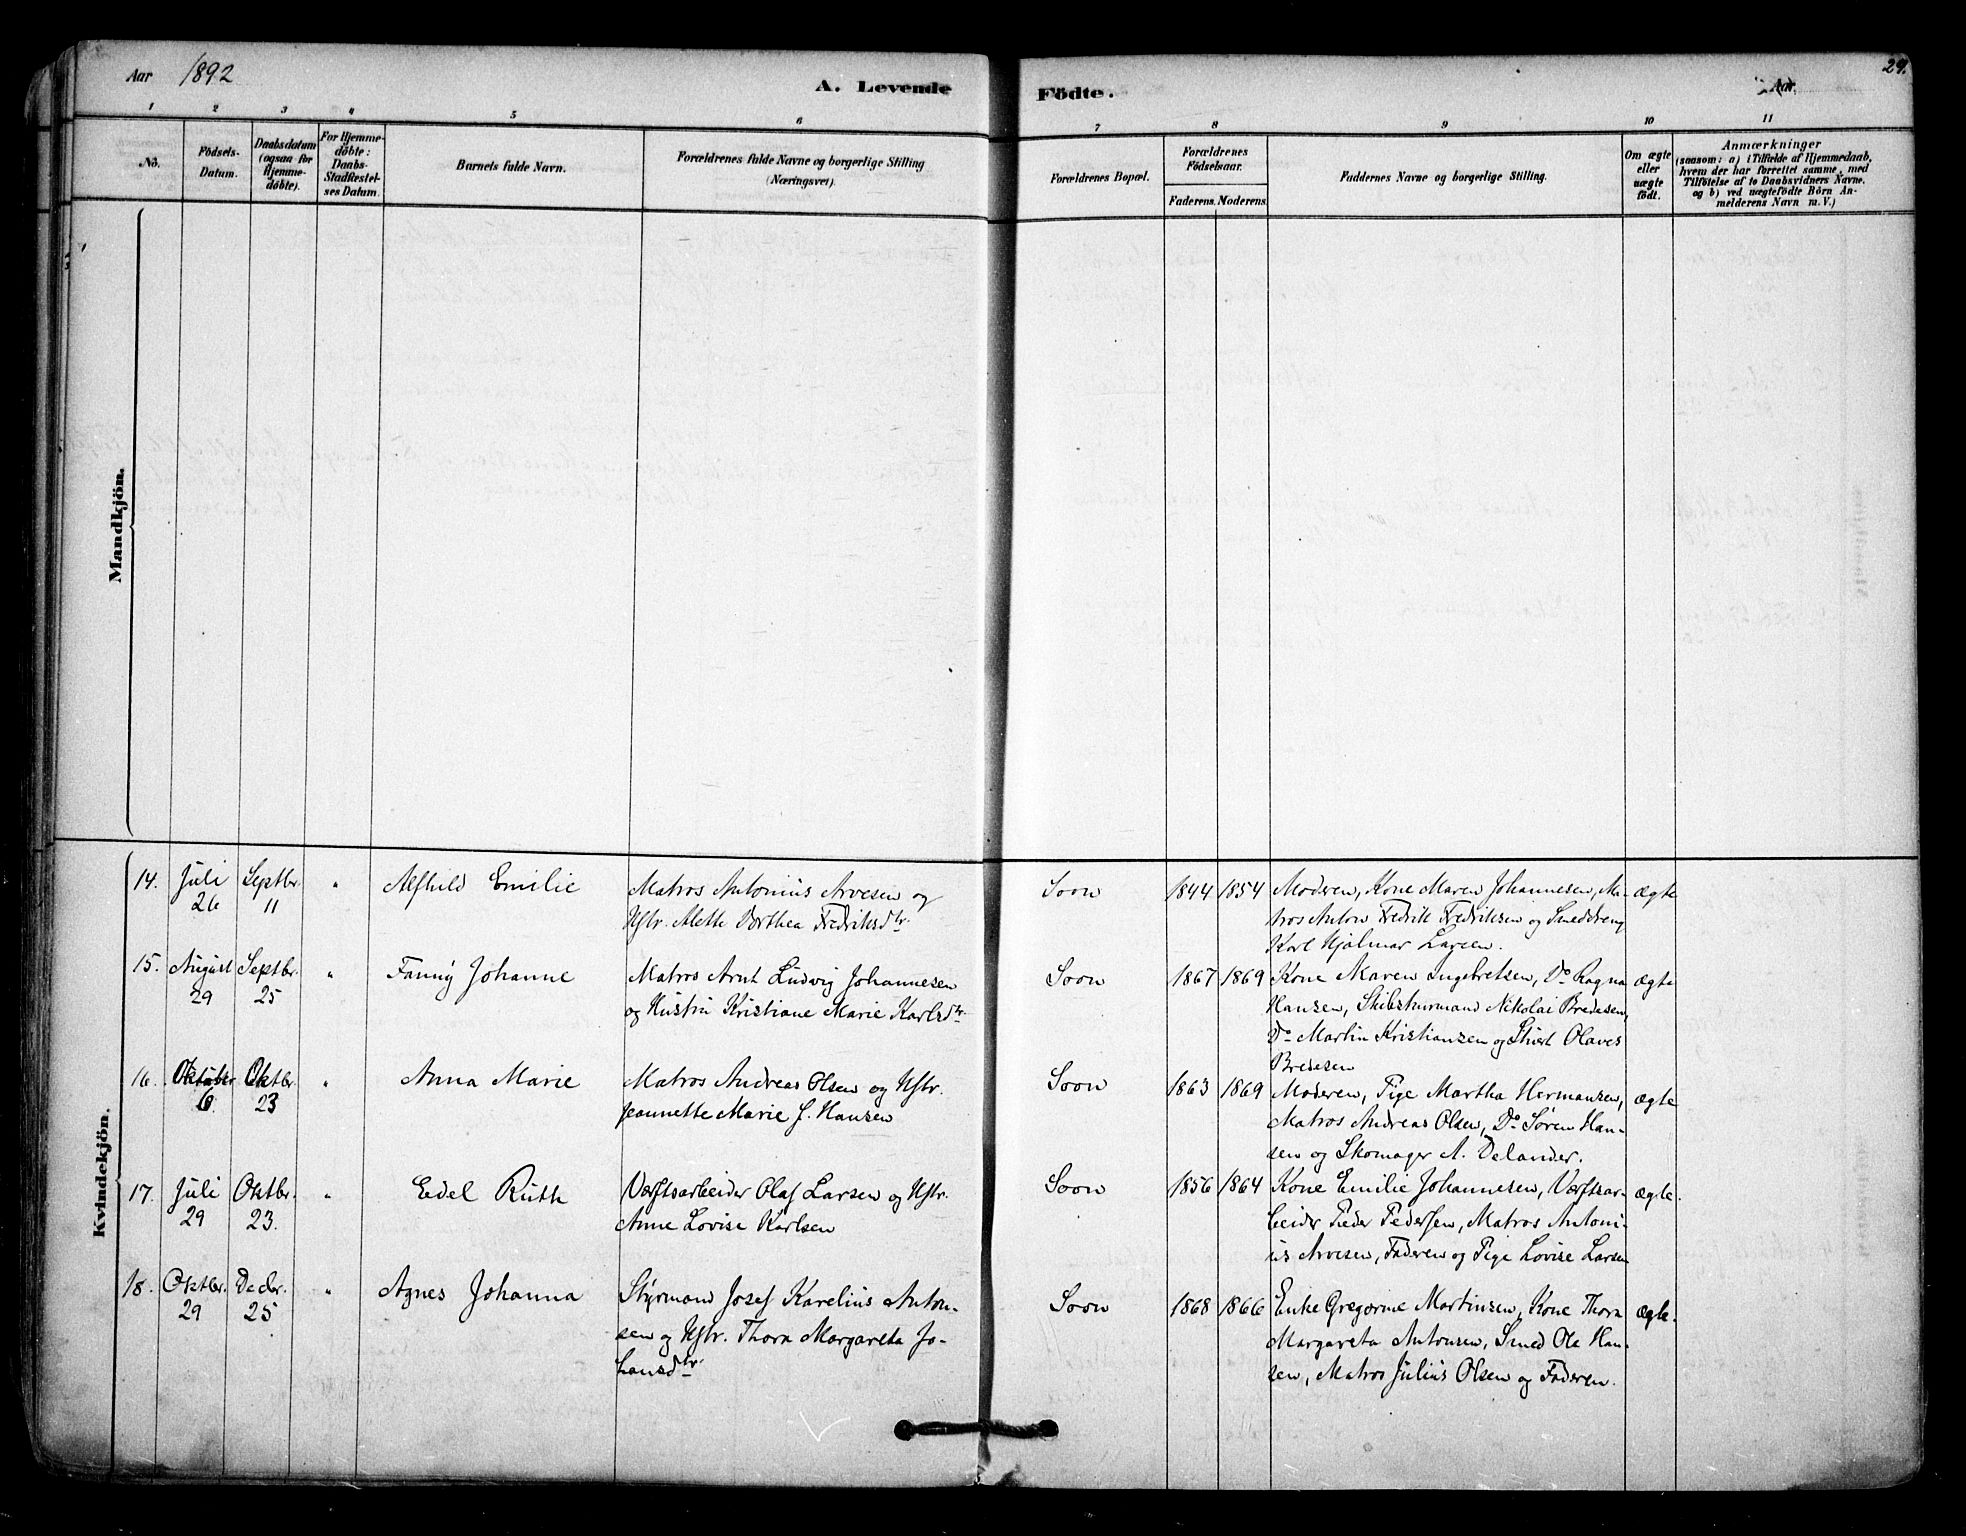 Aar 1892
A. Levende Födte.
Aar
29.
1 2 3 4 5 6 7 8 9 10 11
No.
Födsels-
Datum.
Daabsdatum
(ogsaa for
Hjemme-
döbte).
For Hjemme-
döbte:
Daabs-
Stadfæstel-
ses Datum.
Barnets fulde Navn.
Forældrenes fulde Navne og borgerlige Stilling
(Næringsvei).
Forældrenes Bopæl.
Forældrenes
Födselsaar.
Faderens. Moderens.
Faddernes Navne og borgerlige Stilling.
Om ægte
eller
uægte
födt.
Anmærkninger
(saasom: a) i Tilfælde af Hjemmedaab,
hvem der har forrettet samme, med
Tilföielse af to Daabsvidners Navne,
og b) ved uægtefödte Börn An-
melderens Navn m. V.)
Mandkjön.
Kvindekjön.
14.
Juli
26
Septbr.
11
"
Alfhild Emilie
Matros Antonius Arvesen og
Hstr. Alette Dorthea Fredriksdtr.
Soon
1844 1854
Moderen, Kone Maren Johannesen, Ma-
tros Anton Fredrik Fredriksen og Smeddreng
Karl Hjalmar Larsen.
ægte
15.
August
29
Septbr.
25
"
Fanny Johanne
Matros Arnt Ludvig Johannesen
og Hustru Kristiane Marie Karlsdtr.
Soon
1867 1869
Kone Maren Ingebretsen, Do Ragna
Hansen, Skibstømmermand Nikolai Bredesen,
Do Martin Kristiansen og Olaves
Bredesen
ægte
16.
Oktober
6.
Oktbr.
23
"
Anna Marie
Matros Andreas Olsen og Hstr.
Jeannette Marie J. Hansen
Soon
1863 1869
Moderen, Pige Martha Hermansen,
Matros Andreas Olsen, Do Sören Han-
sen og Skomager A. Delander.
ægte
17.
Juli
29
Oktbr.
23.
"
Edel Ruth
Værftsarbeider Olaf Larsen og Hstr.
Anne Lovise Karlsen
Soon
1856 1864
Kone Emilie Johannesen, Værftsar-
beider Peder Pedersen, Matros Antoni-
us Arvesen, Faderen og Pige Lovise Larsen
ægte.
18.
Oktbr.
29
Decbr.
25
"
Agnes Johanna
Styrmand Josef Karelius Anton-
sen og Hstr. Thora Margareta Jo-
hansdtr.
Soon
1868 1866
Enke Gregorine Martinsen, Kone Thora
Margareta Antonsen, Smed Ole Han-
sen, Matros Julius Olsen og Faderen.
ægte.